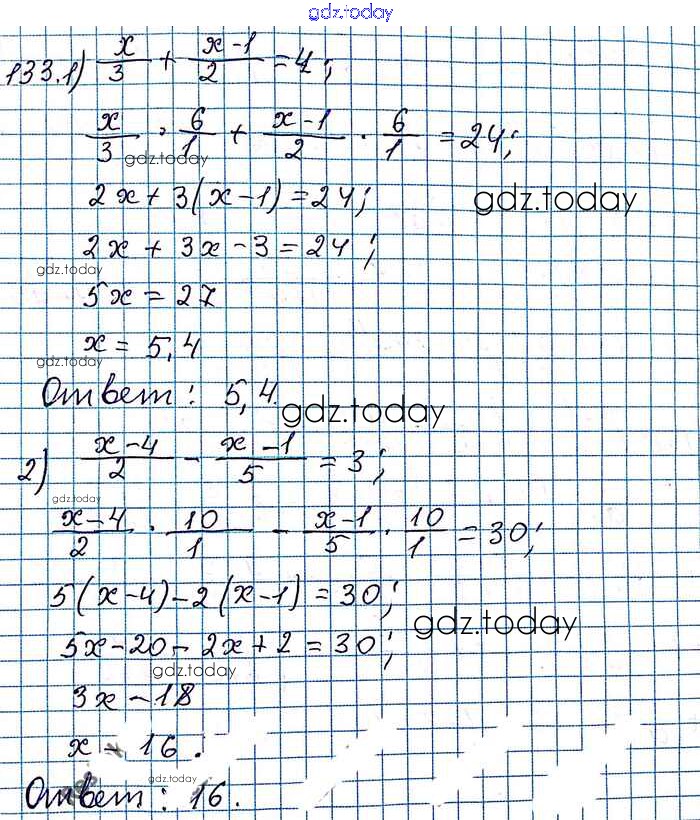 gdz.today
133.1) x/3 + x-1/2 = 4;
x/3 · 6/1 + x-1/2 · 6/1 = 24;
gdz.today
2x + 3(x-1) = 24;
gdz.today
2x + 3x - 3 = 24;
gdz.today
5x = 27
x = 5,4
gdz.today
Ответ: 5,4.
gdz.today
2) x-4/2 - x-1/5 = 3;
gdz.today
x-4/2 · 10/1 - x-1/5 · 10/1 = 30;
5(x-4) - 2(x-1) = 30;
gdz.today
5x - 20 - 2x + 2 = 30;
gdz.today
3x - 18
x = 16.
gdz.today
Ответ: 16.